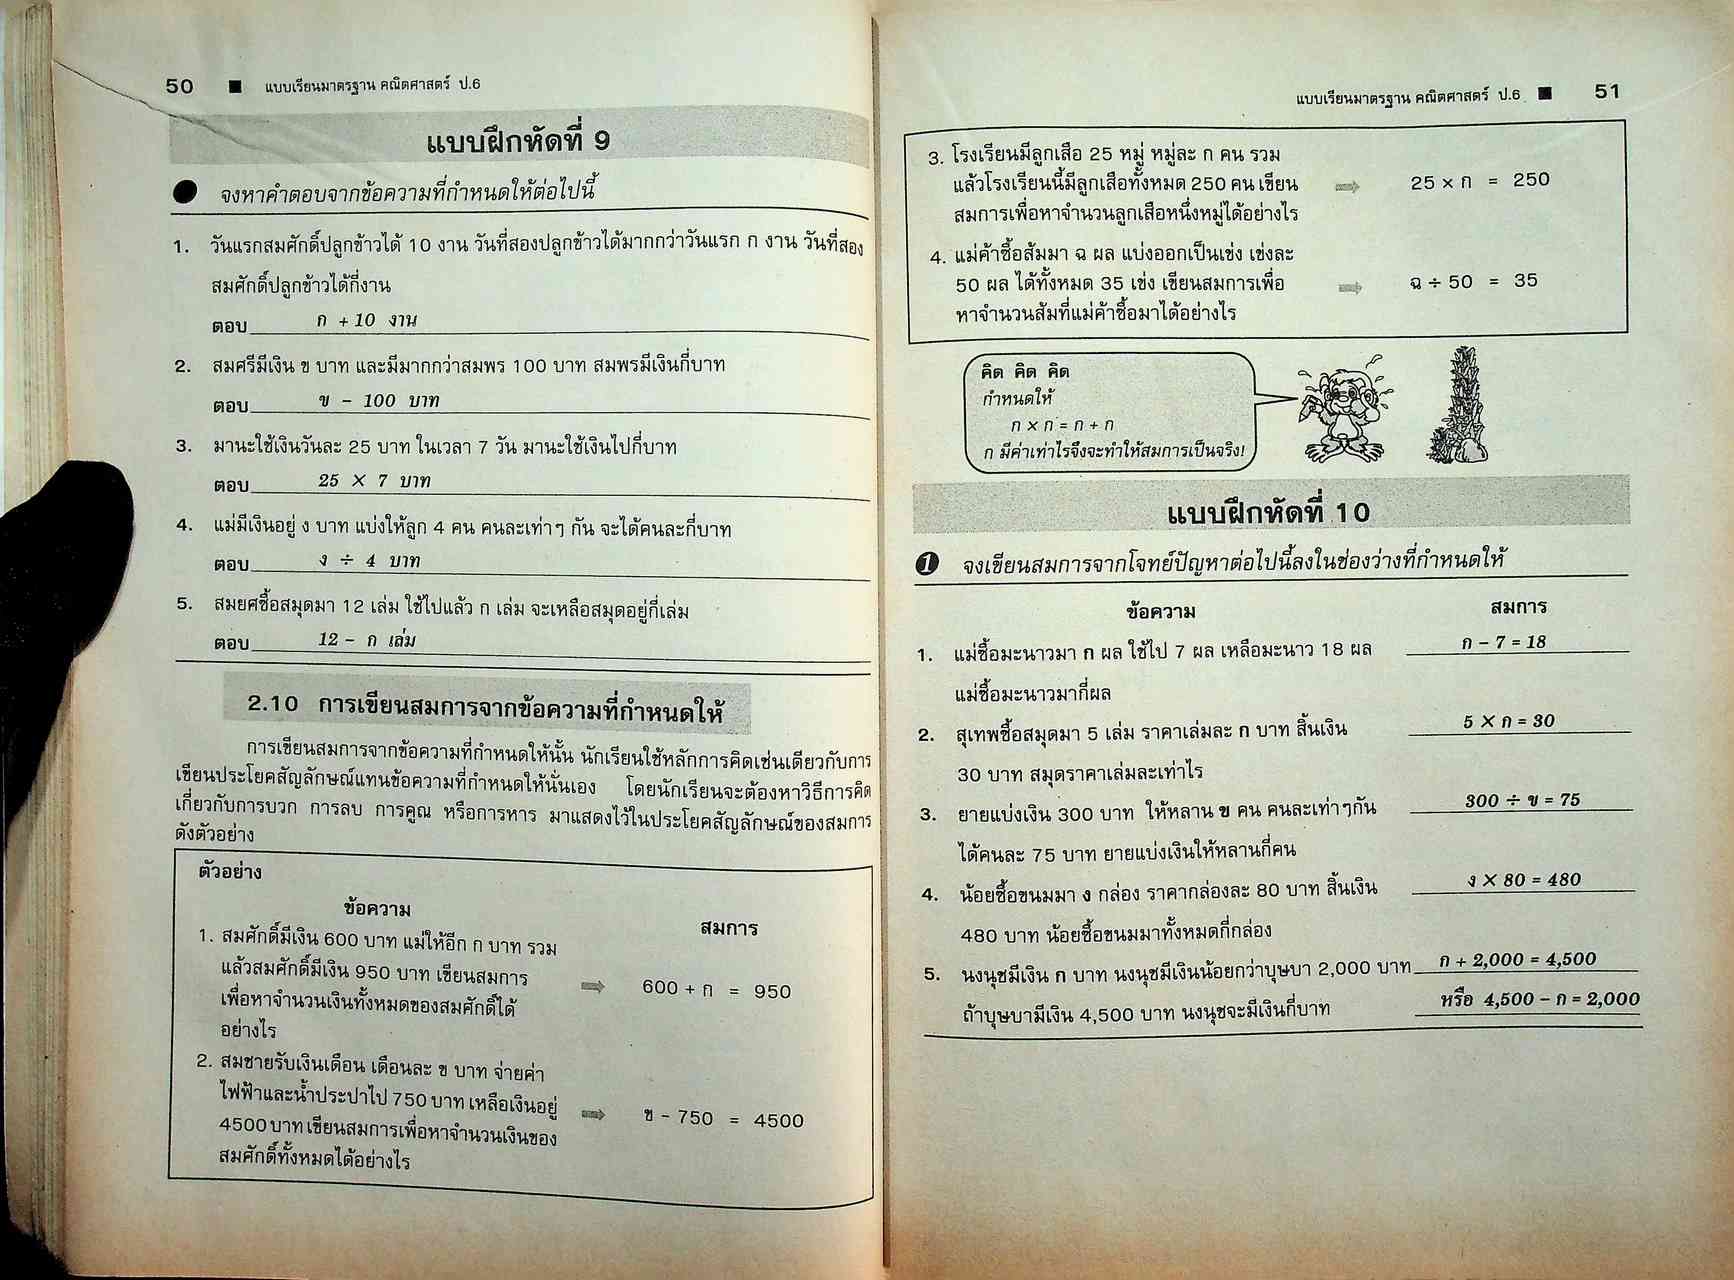 50 ■ แบบเรียนมาตรฐาน คณิตศาสตร์ ป.6
แบบฝึกหัดที่ 9
● จงหาคำตอบจากข้อความที่กำหนดให้ต่อไปนี้
1. วันแรกสมศักดิ์ปลูกข้าวได้ 10 งาน วันที่สองปลูกข้าวได้มากกว่าวันแรก ก งาน วันที่สอง
สมศักดิ์ปลูกข้าวได้กี่งาน
ตอบ ก + 10 งาน
2. สมศรีมีเงิน ข บาท และมีมากกว่าสมพร 100 บาท สมพรมีเงินกี่บาท
ตอบ ข - 100 บาท
3. มานะใช้เงินวันละ 25 บาท ในเวลา 7 วัน มานะใช้เงินไปกี่บาท
ตอบ 25 × 7 บาท
4. แม่มีเงินอยู่ ง บาท แบ่งให้ลูก 4 คน คนละเท่าๆ กัน จะได้คนละกี่บาท
ตอบ ง ÷ 4 บาท
5. สมยศซื้อสมุดมา 12 เล่ม ใช้ไปแล้ว ก เล่ม จะเหลือสมุดอยู่กี่เล่ม
ตอบ 12 - ก เล่ม
2.10 การเขียนสมการจากข้อความที่กำหนดให้
การเขียนสมการจากข้อความที่กำหนดให้นั้น นักเรียนใช้หลักการคิดเช่นเดียวกับการ
เขียนประโยคสัญลักษณ์แทนข้อความที่กำหนดให้นั่นเอง โดยนักเรียนจะต้องหาวิธีการคิด
เกี่ยวกับการบวก การลบ การคูณ หรือการหาร มาแสดงไว้ในประโยคสัญลักษณ์ของสมการ
ดังตัวอย่าง
ตัวอย่าง
ข้อความ สมการ
1. สมศักดิ์มีเงิน 600 บาท แม่ให้อีก ก บาท รวม
แล้วสมศักดิ์มีเงิน 950 บาท เขียนสมการ ⇒ 600 + ก = 950
เพื่อหาจำนวนเงินทั้งหมดของสมศักดิ์ได้
อย่างไร
2. สมชายรับเงินเดือน เดือนละ ข บาท จ่ายค่า
ไฟฟ้าและน้ำประปาไป 750 บาท เหลือเงินอยู่ ⇒ ข - 750 = 4500
4500 บาท เขียนสมการเพื่อหาจำนวนเงินของ
สมศักดิ์ทั้งหมดได้อย่างไร
แบบเรียนมาตรฐาน คณิตศาสตร์ ป.6 ■ 51
3. โรงเรียนมีลูกเสือ 25 หมู่ หมู่ละ ก คน รวม
แล้วโรงเรียนนี้มีลูกเสือทั้งหมด 250 คน เขียน ⇒ 25 × ก = 250
สมการเพื่อหาจำนวนลูกเสือหนึ่งหมู่ได้อย่างไร
4. แม่ค้าซื้อส้มมา ฉ ผล แบ่งออกเป็นเข่ง เข่งละ
50 ผล ได้ทั้งหมด 35 เข่ง เขียนสมการเพื่อ ⇒ ฉ ÷ 50 = 35
หาจำนวนส้มที่แม่ค้าซื้อมาได้อย่างไร
คิด คิด คิด
กำหนดให้
ก × ก = ก + ก
ก มีค่าเท่าไรจึงจะทำให้สมการเป็นจริง!
แบบฝึกหัดที่ 10
1 จงเขียนสมการจากโจทย์ปัญหาต่อไปนี้ลงในช่องว่างที่กำหนดให้
ข้อความ สมการ
1. แม่ซื้อมะนาวมา ก ผล ใช้ไป 7 ผล เหลือมะนาว 18 ผล ก - 7 = 18
แม่ซื้อมะนาวมากี่ผล
2. สุเทพซื้อสมุดมา 5 เล่ม ราคาเล่มละ ก บาท สิ้นเงิน 5 × ก = 30
30 บาท สมุดราคาเล่มละเท่าไร
3. ยายแบ่งเงิน 300 บาท ให้หลาน ข คน คนละเท่าๆกัน 300 ÷ ข = 75
ได้คนละ 75 บาท ยายแบ่งเงินให้หลานกี่คน
4. น้อยซื้อขนมมา ง กล่อง ราคากล่องละ 80 บาท สิ้นเงิน ง × 80 = 480
480 บาท น้อยซื้อขนมมาทั้งหมดกี่กล่อง
5. นงนุชมีเงิน ก บาท นงนุชมีเงินน้อยกว่าบุษบา 2,000 บาท ก + 2,000 = 4,500
ถ้าบุษบามีเงิน 4,500 บาท นงนุชจะมีเงินกี่บาท หรือ 4,500 - ก = 2,000